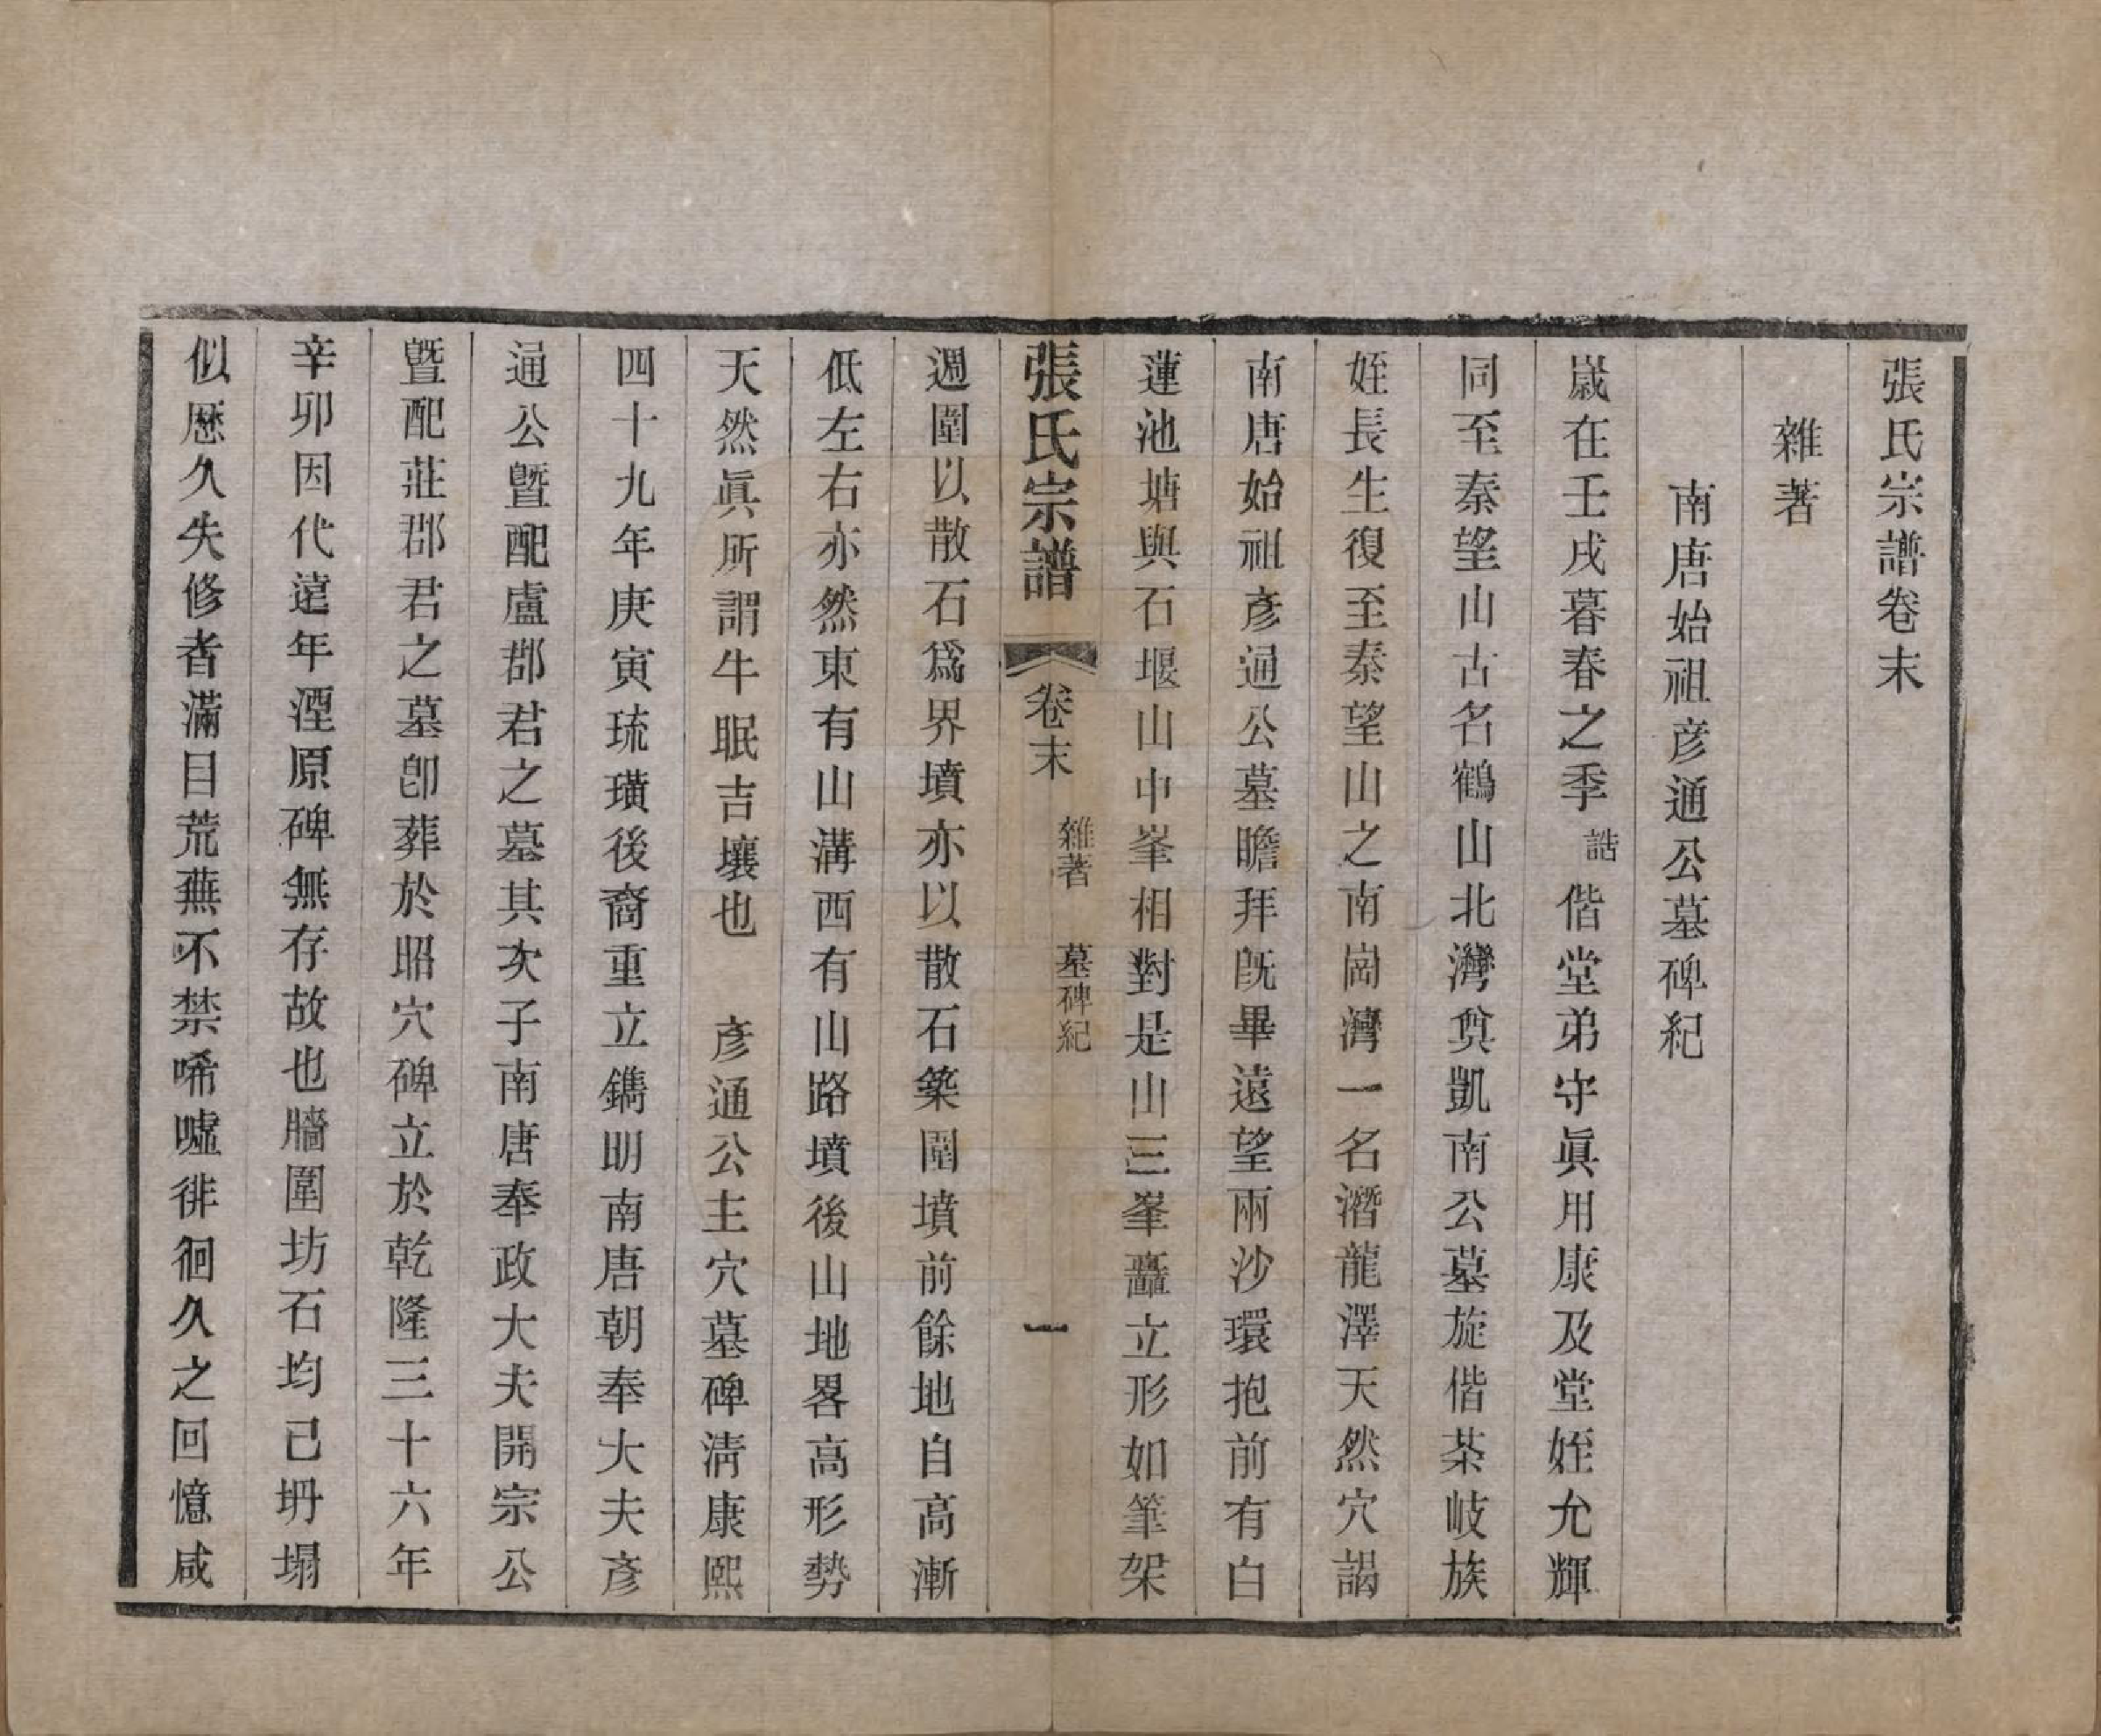 張氏宗譜卷末
雜著
南唐始祖彦通公墓碑紀
嵗在壬戌暮春之季誥偕堂弟守眞用康及堂姪允輝
同至秦望山古名鶴山北灣奠凱南公墓旋偕茶岐族
姪長生復至秦望山之南崗灣一名潛龍澤天然穴謁
南唐始祖彥通公墓瞻拜旣畢遠望兩沙環抱前有白
蓮池塘與石堰山中峯相對是山三峯矗立形如筆架
張氏宗譜 卷末 雜著 墓碑紀 一
週圍以散石爲界墳亦以散石築圍墳前餘地自高漸
低左右亦然東有山溝西有山路墳後山地畧高形勢
天然眞所謂牛眠吉壤也 彥通公主穴墓碑淸康熙
四十九年庚寅琉璜後裔重立鐫明南唐朝奉大夫彥
通公曁配盧郡君之墓其次子南唐奉政大夫開宗公
曁配莊郡君之墓卽葬於昭穴碑立於乾隆三十六年
辛卯因代遠年湮原碑無存故也牆圍坊石均已坍塌
似歷久失修者滿目荒蕪不禁唏噓徘徊久之回憶咸